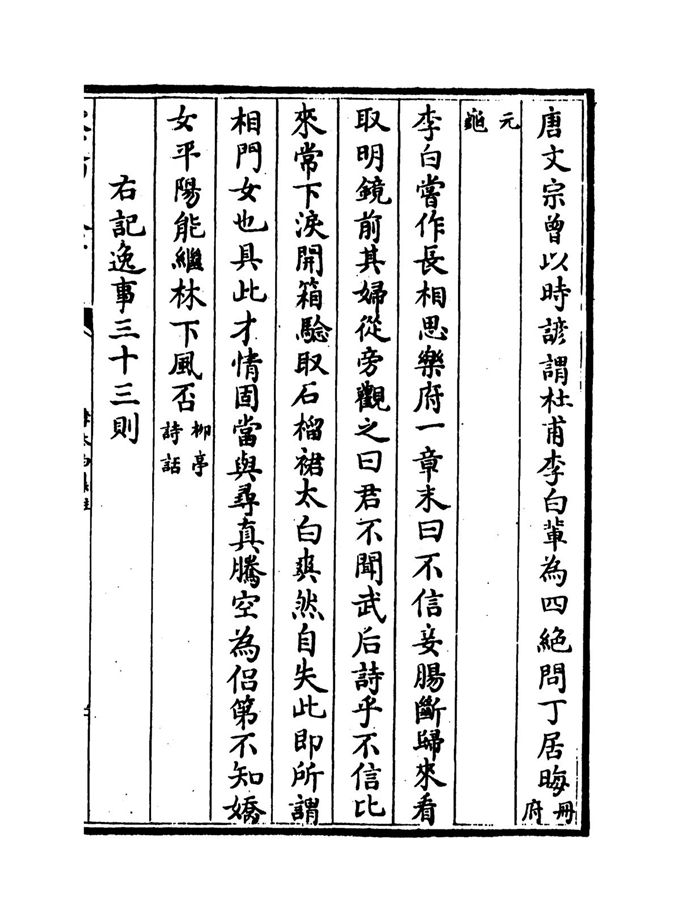 唐文宗曾以時諺謂杜甫李白軰為四絶問丁居晦冊府
元龜
李白嘗作長相思樂府一章末曰不信妾腸斷歸來看
取明鏡前其婦從旁觀之曰君不聞武后詩乎不信比
來常下淚開箱驗取石榴裙太白爽然自失此即所謂
相門女也具此才情固當與尋真騰空為侣第不知嬌
女平陽能繼林下風否柳亭詩話
右記逸事三十三則